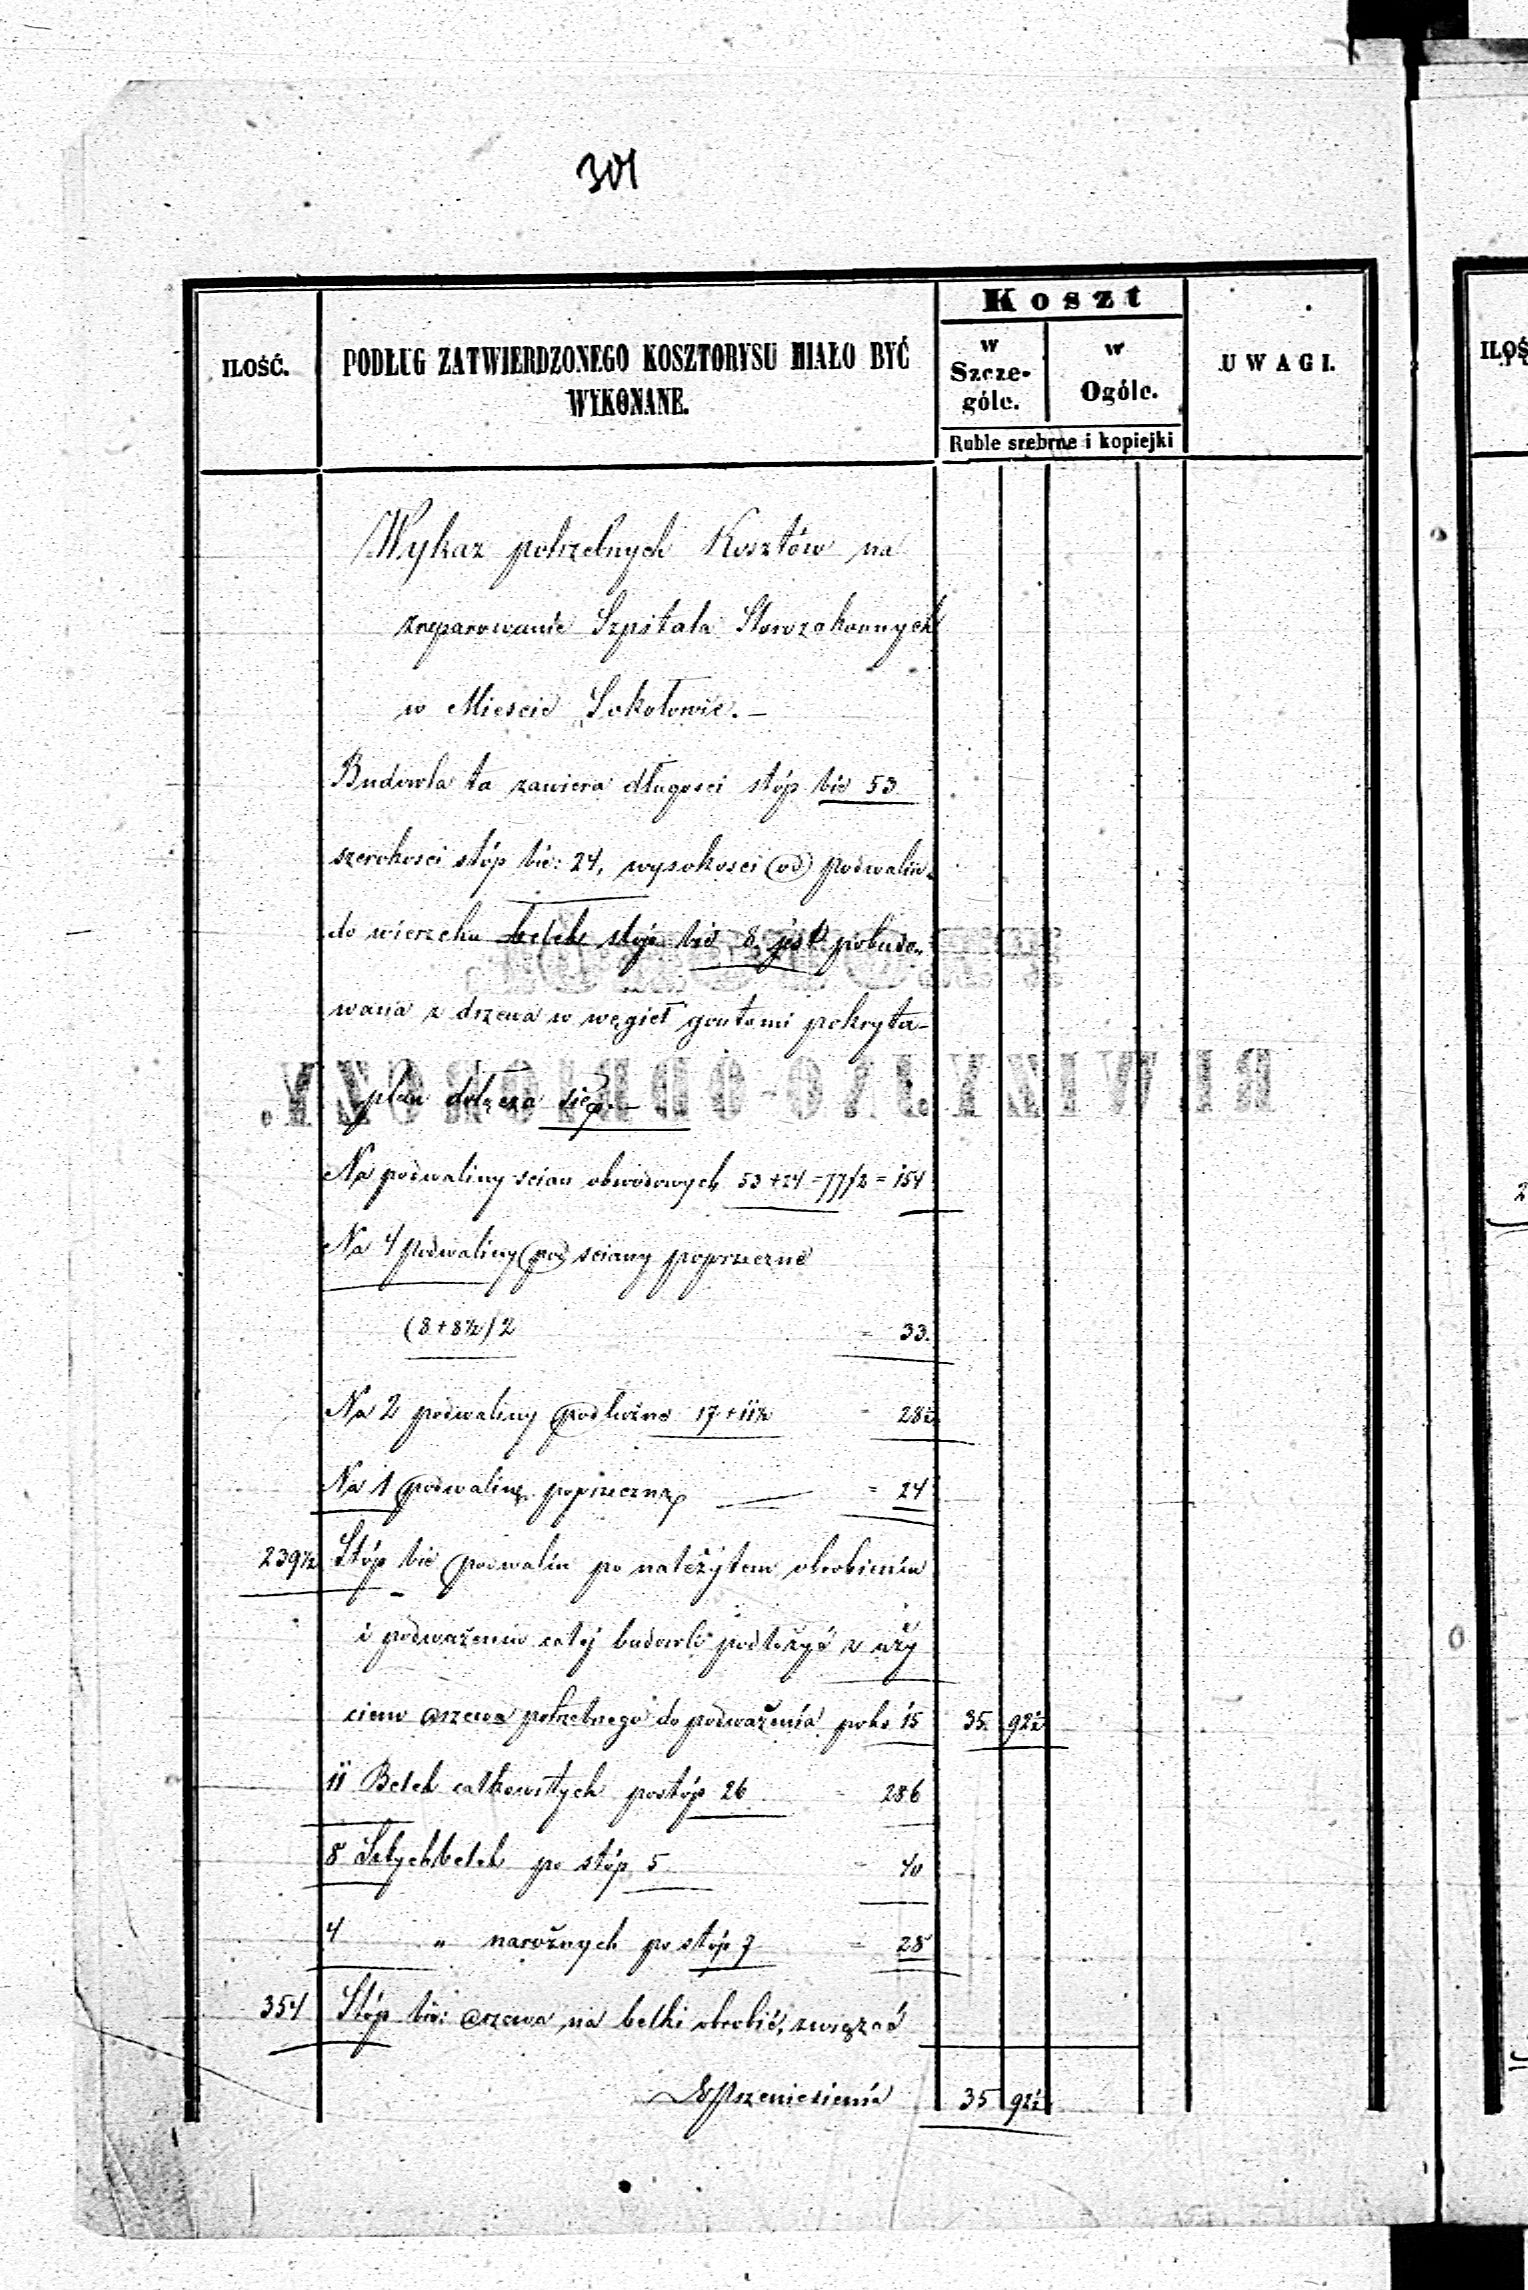 301
Koszt
ILOŚĆ.
PODŁUG ZATWIERDZONEGO KOSZTORYSU MIAŁO BYĆ
WYKONANE.
w Szczególe.
w Ogóle.
UWAGI.
Ruble srebrne i kopiejki
ILOŚ
Wykaz potrzebnych Kosztów na
zreparowanie Szpitala Starozakonnych
w Mieście Sokołowie. —
Budowla ta zawiera długości stóp bie 53
szerokosci stóp bie: 24, wysokosci od podwalin
do wierzchu belek stóp bie 8 jest pobudo-
wana z drzewa w węgieł gontami pokryta
plan dołącza się. —
Na podwaliny scian obwodowych 53 + 24 = 77/2 = 154
Na 4 podwaliny pod sciany poprzeczne
(8 + 8½)/2 = 33.
Na 2 podwaliny podłużne 17 + 11½ = 28½
Na 1 podwalinę poprzeczną — = 24
239½ Stóp bie podwalin po należytem obrobieniu
i podważeniu całej budowli podłożyć z uży
ciem drzewa potrzebnego do podważenia po ko 15 35. 92½
11 Belek całkowitych po stóp 26 = 286
8 Sztychbelek po stóp 5 = 40
4 " narożnych po stóp 7 = 28
354 Stóp bie: drzewa na belki obrobić, związać
Do Przeniesienia 35 92½